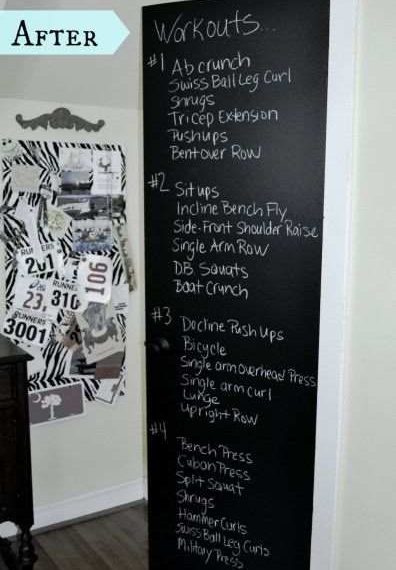 AFTER
Workouts...
#1 Ab crunch
Swiss Ball Leg Curl
Shrugs
Tricep Extension
Pushups
Bent over Row
#2 Sit ups
Incline Bench Fly
Side-Front Shoulder Raise
Single Arm Row
DB Squats
Boat Crunch
#3 Decline Push Ups
Bicycle
Single arm overhead Press
Single arm curl
Lunge
Upright Row
#4 Bench Press
Cuban Press
Split Squat
Shrugs
Hammer Curls
Swiss Ball Leg Curls
Military Press
RUNN
201
106
23
RUNNER
310
RUNNERS
3001